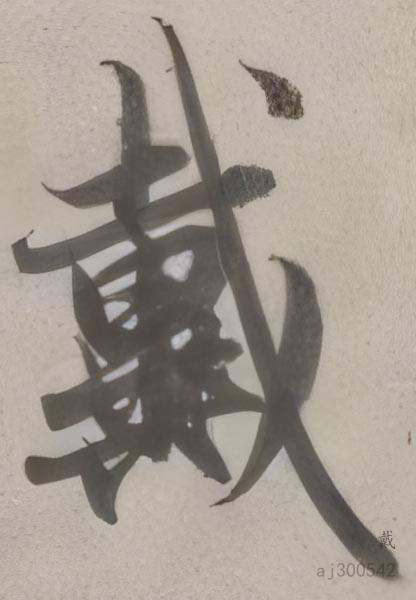 戴
戴
aj300542